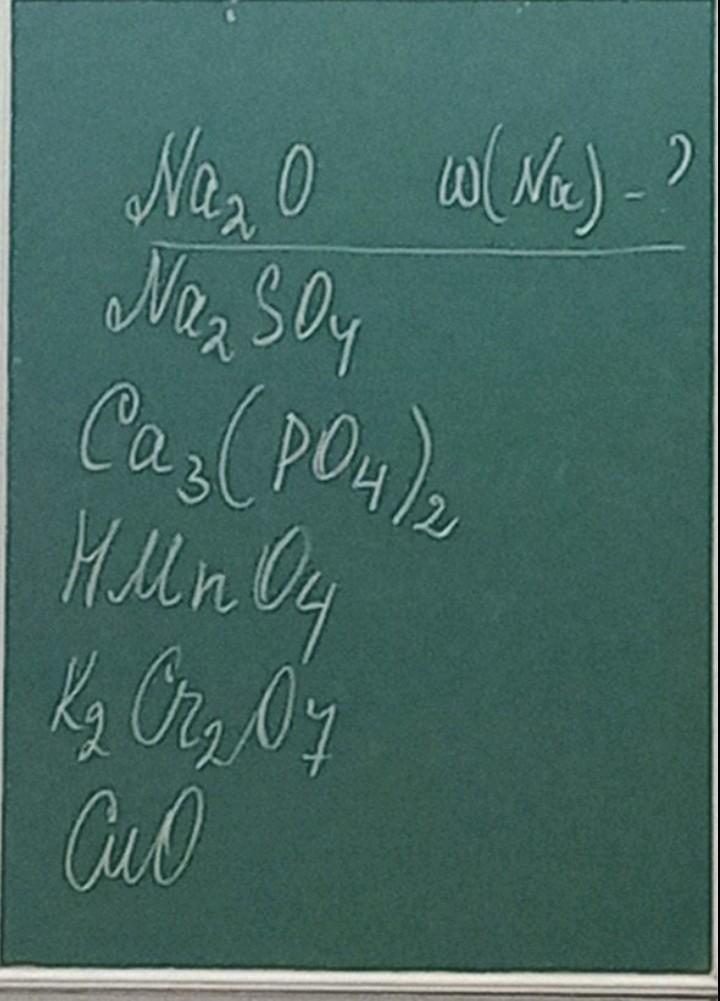 Na₂O w(Na) - ?
Na₂SO₄
Ca₃(PO₄)₂
HMnO₄
K₂Cr₂O₇
CuO